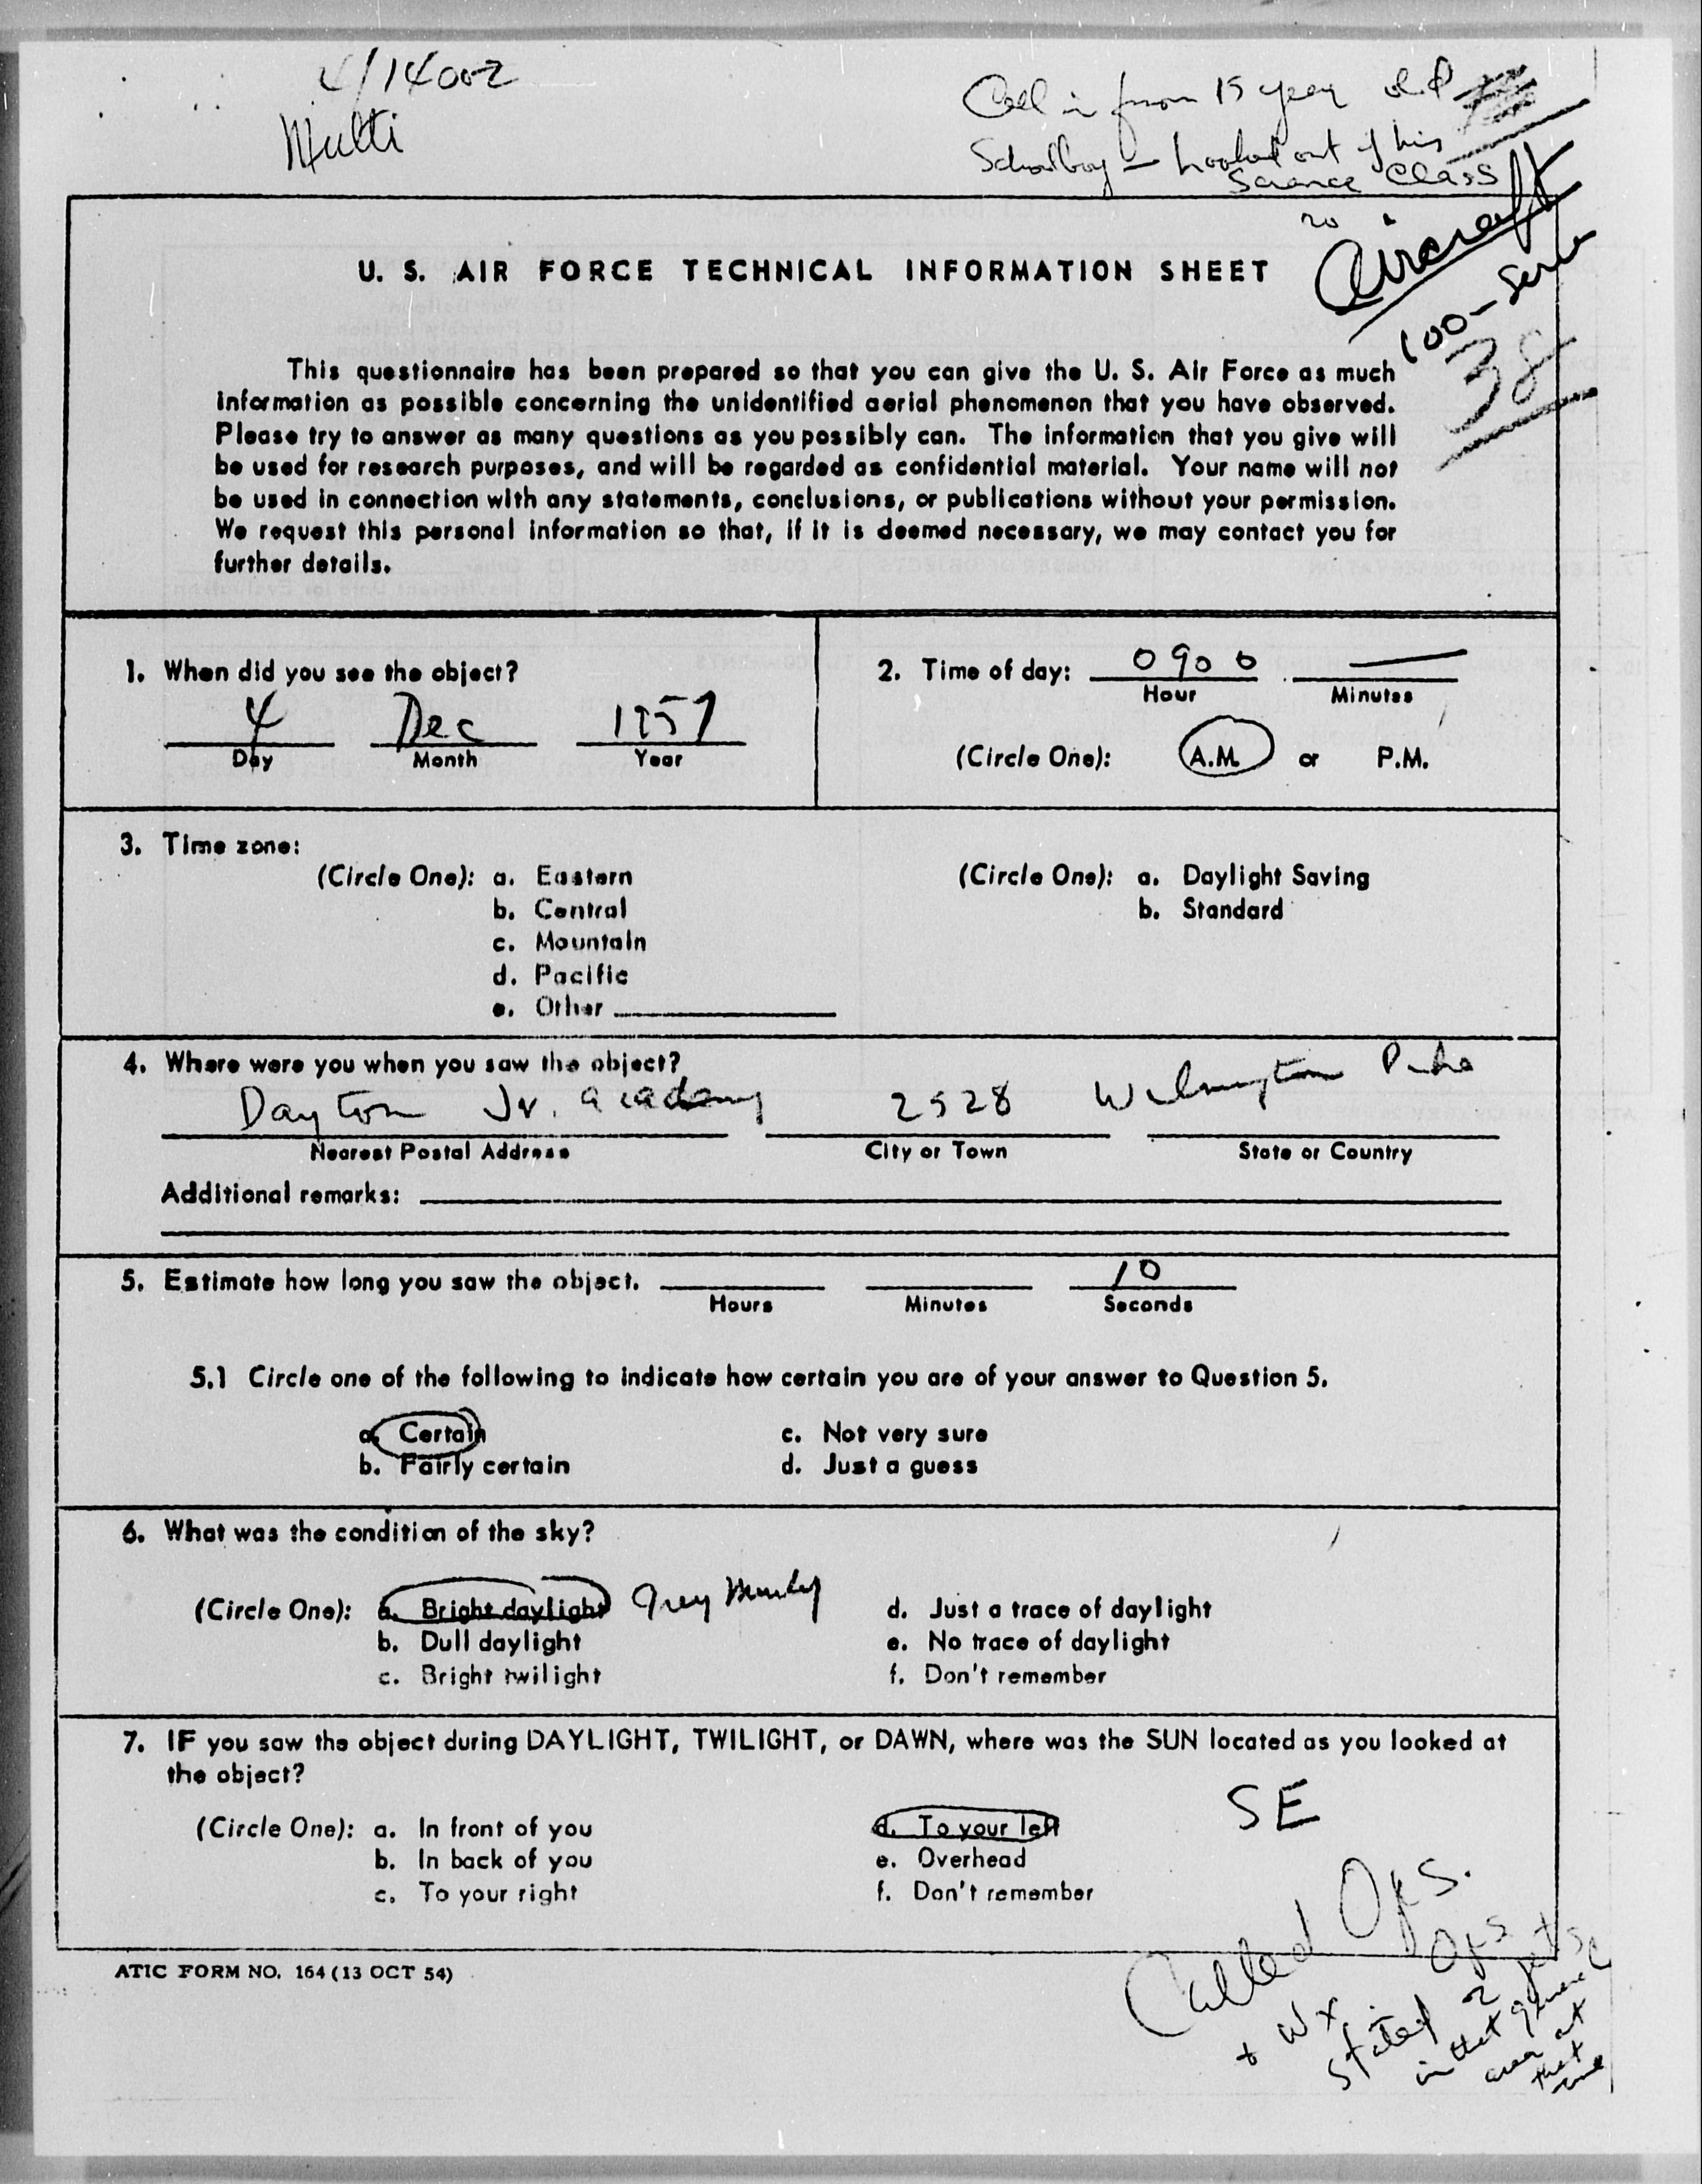 4/1400Z
Multi
Call in from 15 year old
Schoolboy — Looked out of his
Science Class
20
Aircraft
100-Series
38
U. S. AIR FORCE TECHNICAL INFORMATION SHEET
This questionnaire has been prepared so that you can give the U. S. Air Force as much
information as possible concerning the unidentified aerial phenomenon that you have observed.
Please try to answer as many questions as you possibly can. The information that you give will
be used for research purposes, and will be regarded as confidential material. Your name will not
be used in connection with any statements, conclusions, or publications without your permission.
We request this personal information so that, if it is deemed necessary, we may contact you for
further details.
1. When did you see the object?
4 Dec 1957
Day Month Year
2. Time of day: 0900 —
Hour Minutes
(Circle One): A.M. or P.M.
3. Time zone:
(Circle One): a. Eastern
b. Central
c. Mountain
d. Pacific
e. Other
(Circle One): a. Daylight Saving
b. Standard
4. Where were you when you saw the object?
Dayton Jr. academy 2528 Wilmington Pike
Nearest Postal Address City or Town State or Country
Additional remarks:
5. Estimate how long you saw the object. 10
Hours Minutes Seconds
5.1 Circle one of the following to indicate how certain you are of your answer to Question 5.
a. Certain c. Not very sure
b. Fairly certain d. Just a guess
6. What was the condition of the sky?
(Circle One): a. Bright daylight Grey d. Just a trace of daylight
b. Dull daylight e. No trace of daylight
c. Bright twilight f. Don't remember
7. IF you saw the object during DAYLIGHT, TWILIGHT, or DAWN, where was the SUN located as you looked at
the object?
SE
(Circle One): a. In front of you d. To your left
b. In back of you e. Overhead
c. To your right f. Don't remember
Called Ops.
+ Wx. Ops
stated 2 jets
in that general
area at
that
time
ATIC FORM NO. 164 (13 OCT 54)